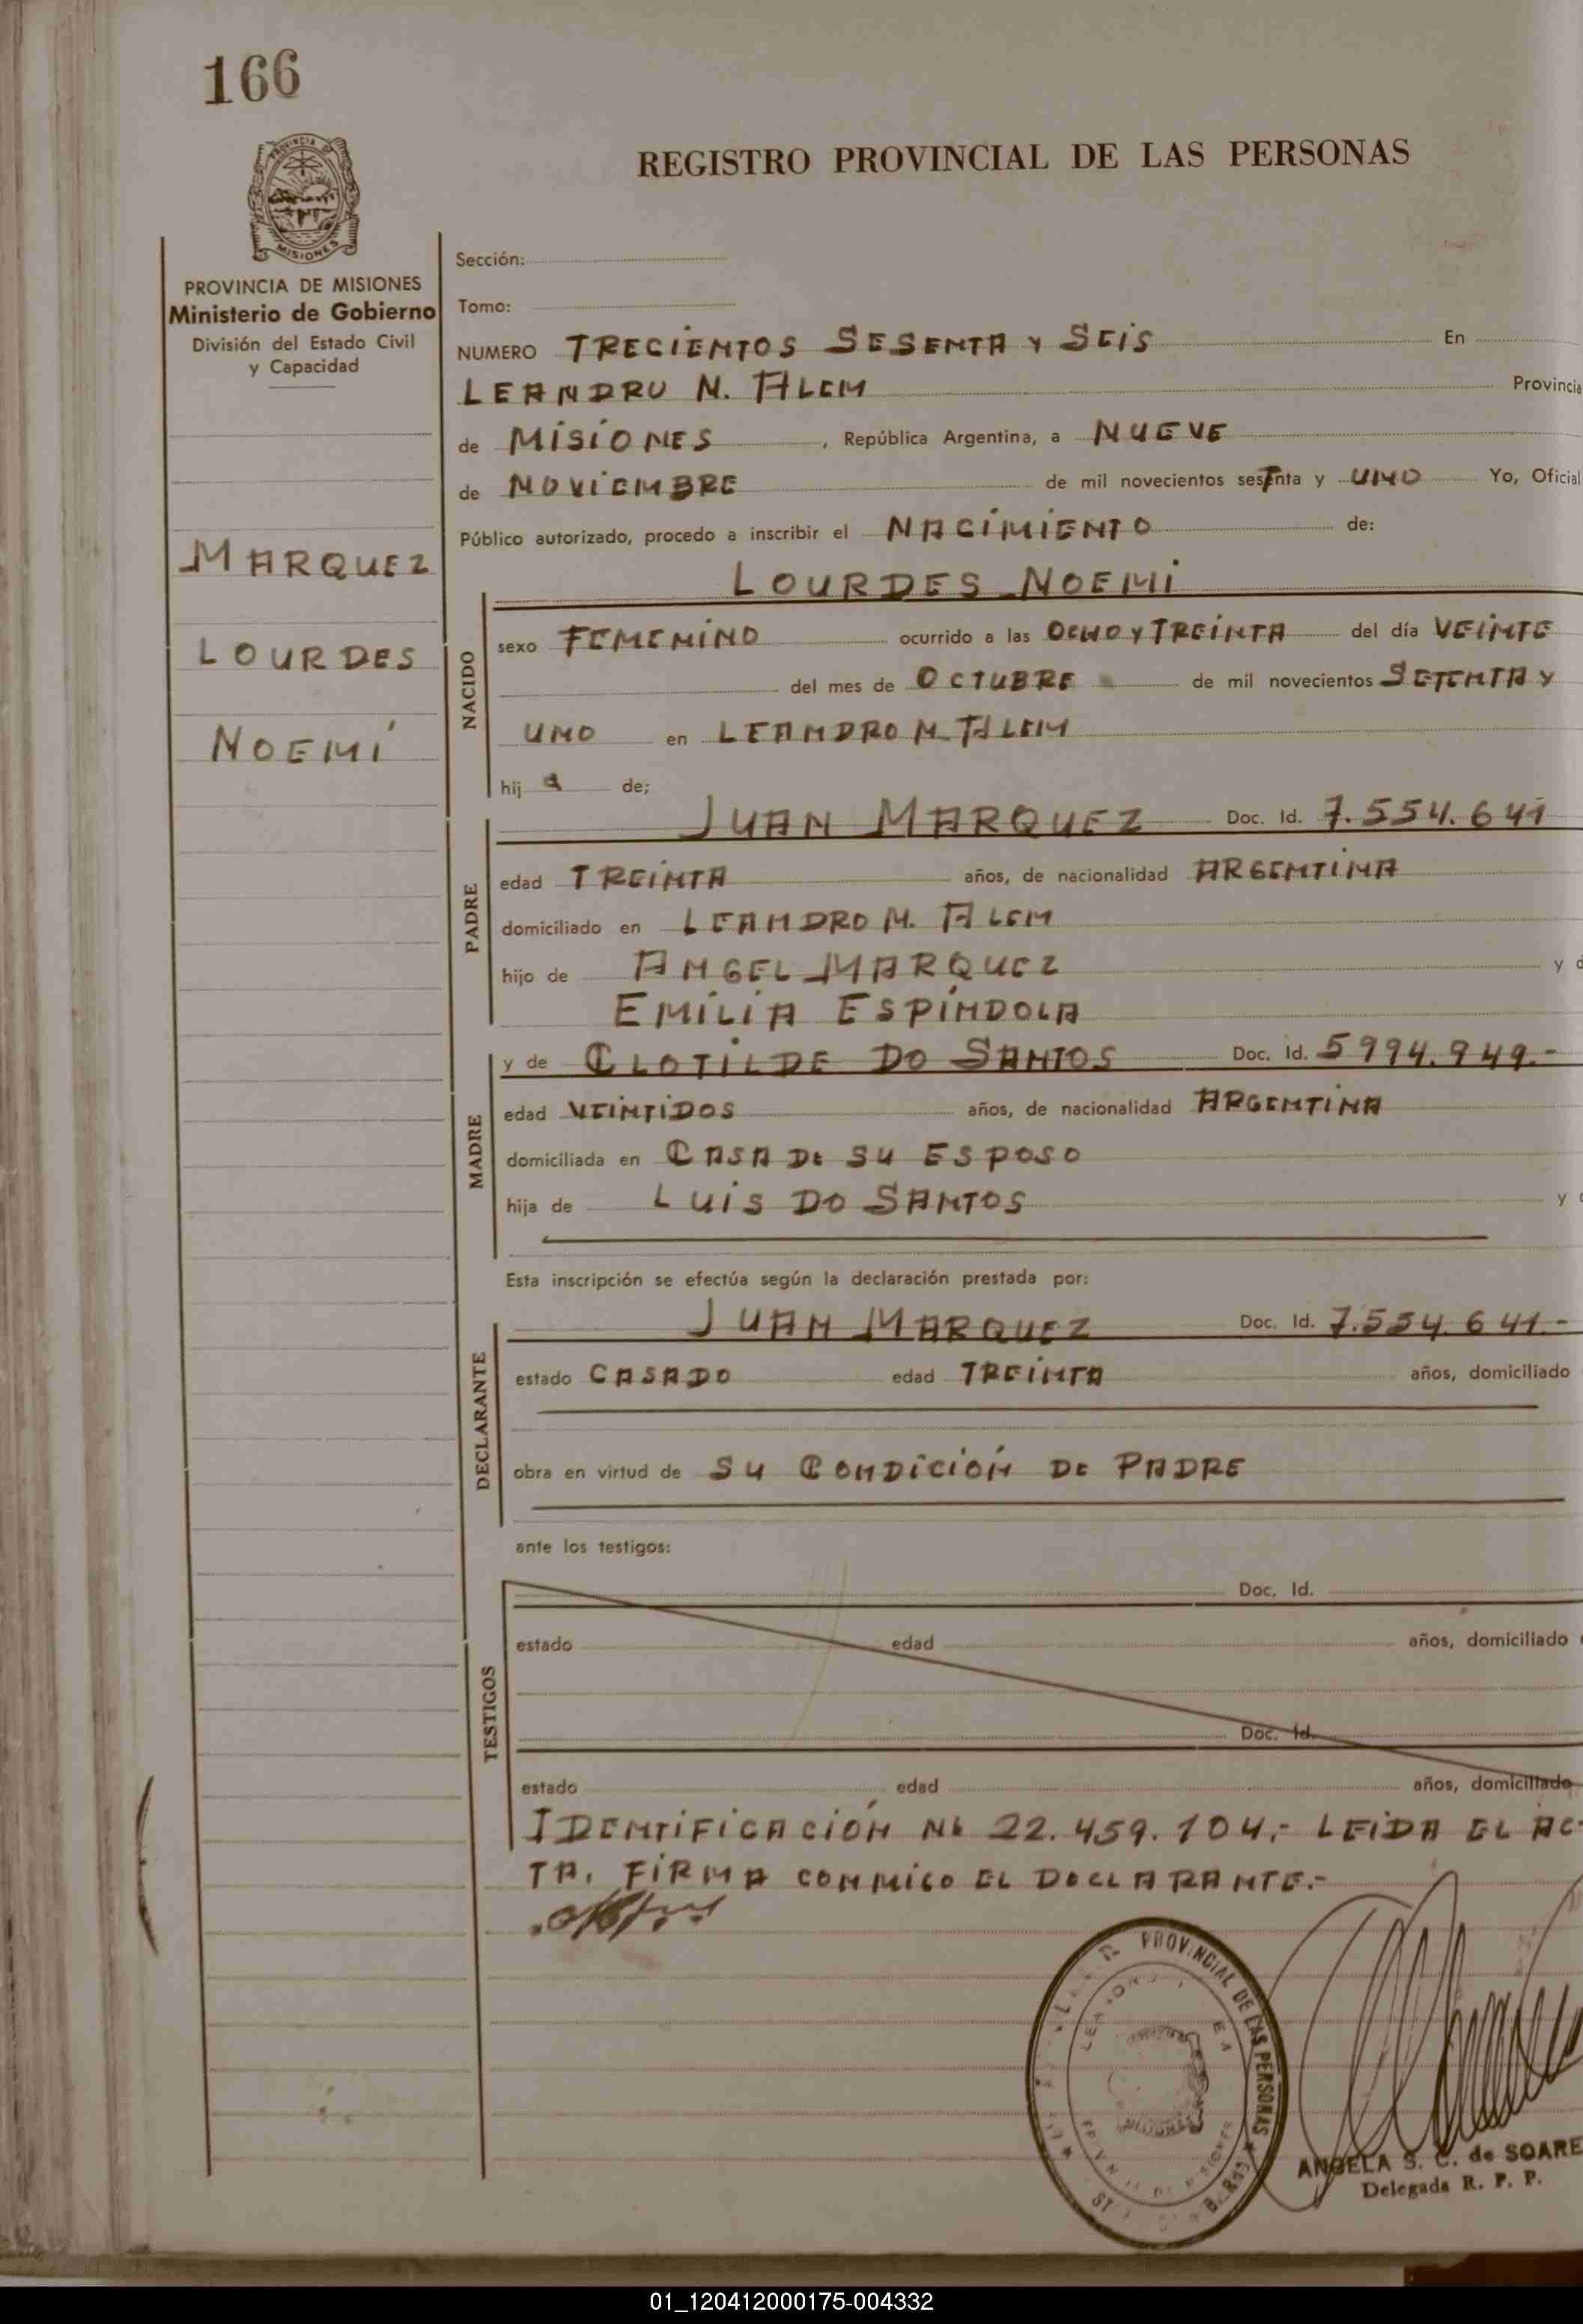 166
PROVINCIA DE MISIONES
REGISTRO PROVINCIAL DE LAS PERSONAS
PROVINCIA DE MISIONES
Ministerio de Gobierno
División del Estado Civil
y Capacidad
MARQUEZ
LOURDES
NOEMÍ
Sección:
Tomo:
NUMERO TRECIENTOS SESENTA Y SEIS En
LEANDRO N. ALEM Provincia
de MISIONES, República Argentina, a NUEVE
de NOVIEMBRE de mil novecientos setenta y UNO Yo, Oficial
Público autorizado, procedo a inscribir el NACIMIENTO de:
NACIDO
LOURDES NOEMI
sexo FEMENINO ocurrido a las OCHO Y TREINTA del día VEINTE
del mes de OCTUBRE de mil novecientos SETENTA Y
UNO en LEANDRO N. ALEM
hij a de;
PADRE
JUAN MARQUEZ Doc. Id. 7.554.641
edad TREINTA años, de nacionalidad ARGENTINA
domiciliado en LEANDRO N. ALEM
hijo de ANGEL MARQUEZ y
EMILIA ESPINDOLA
MADRE
y de CLOTILDE DO SANTOS Doc. Id. 5994.949.-
edad VEINTIDOS años, de nacionalidad ARGENTINA
domiciliada en CASA DE SU ESPOSO
hija de LUIS DO SANTOS y
Esta inscripción se efectúa según la declaración prestada por:
DECLARANTE
JUAN MARQUEZ Doc. Id. 7.554.641.-
estado CASADO edad TREINTA años, domiciliado
obra en virtud de SU CONDICIÓN DE PADRE
ante los testigos:
TESTIGOS
Doc. Id.
estado edad años, domiciliado
Doc. Id.
estado edad años, domiciliado
IDENTIFICACIÓN Nº 22.459.104.- LEIDA EL AC-
TA, FIRMA CONMIGO EL DECLARANTE.-
PROVINCIAL DE LAS PERSONAS
ANGELA S. C. de SOARE
Delegada R. P. P.
01_120412000175-004332